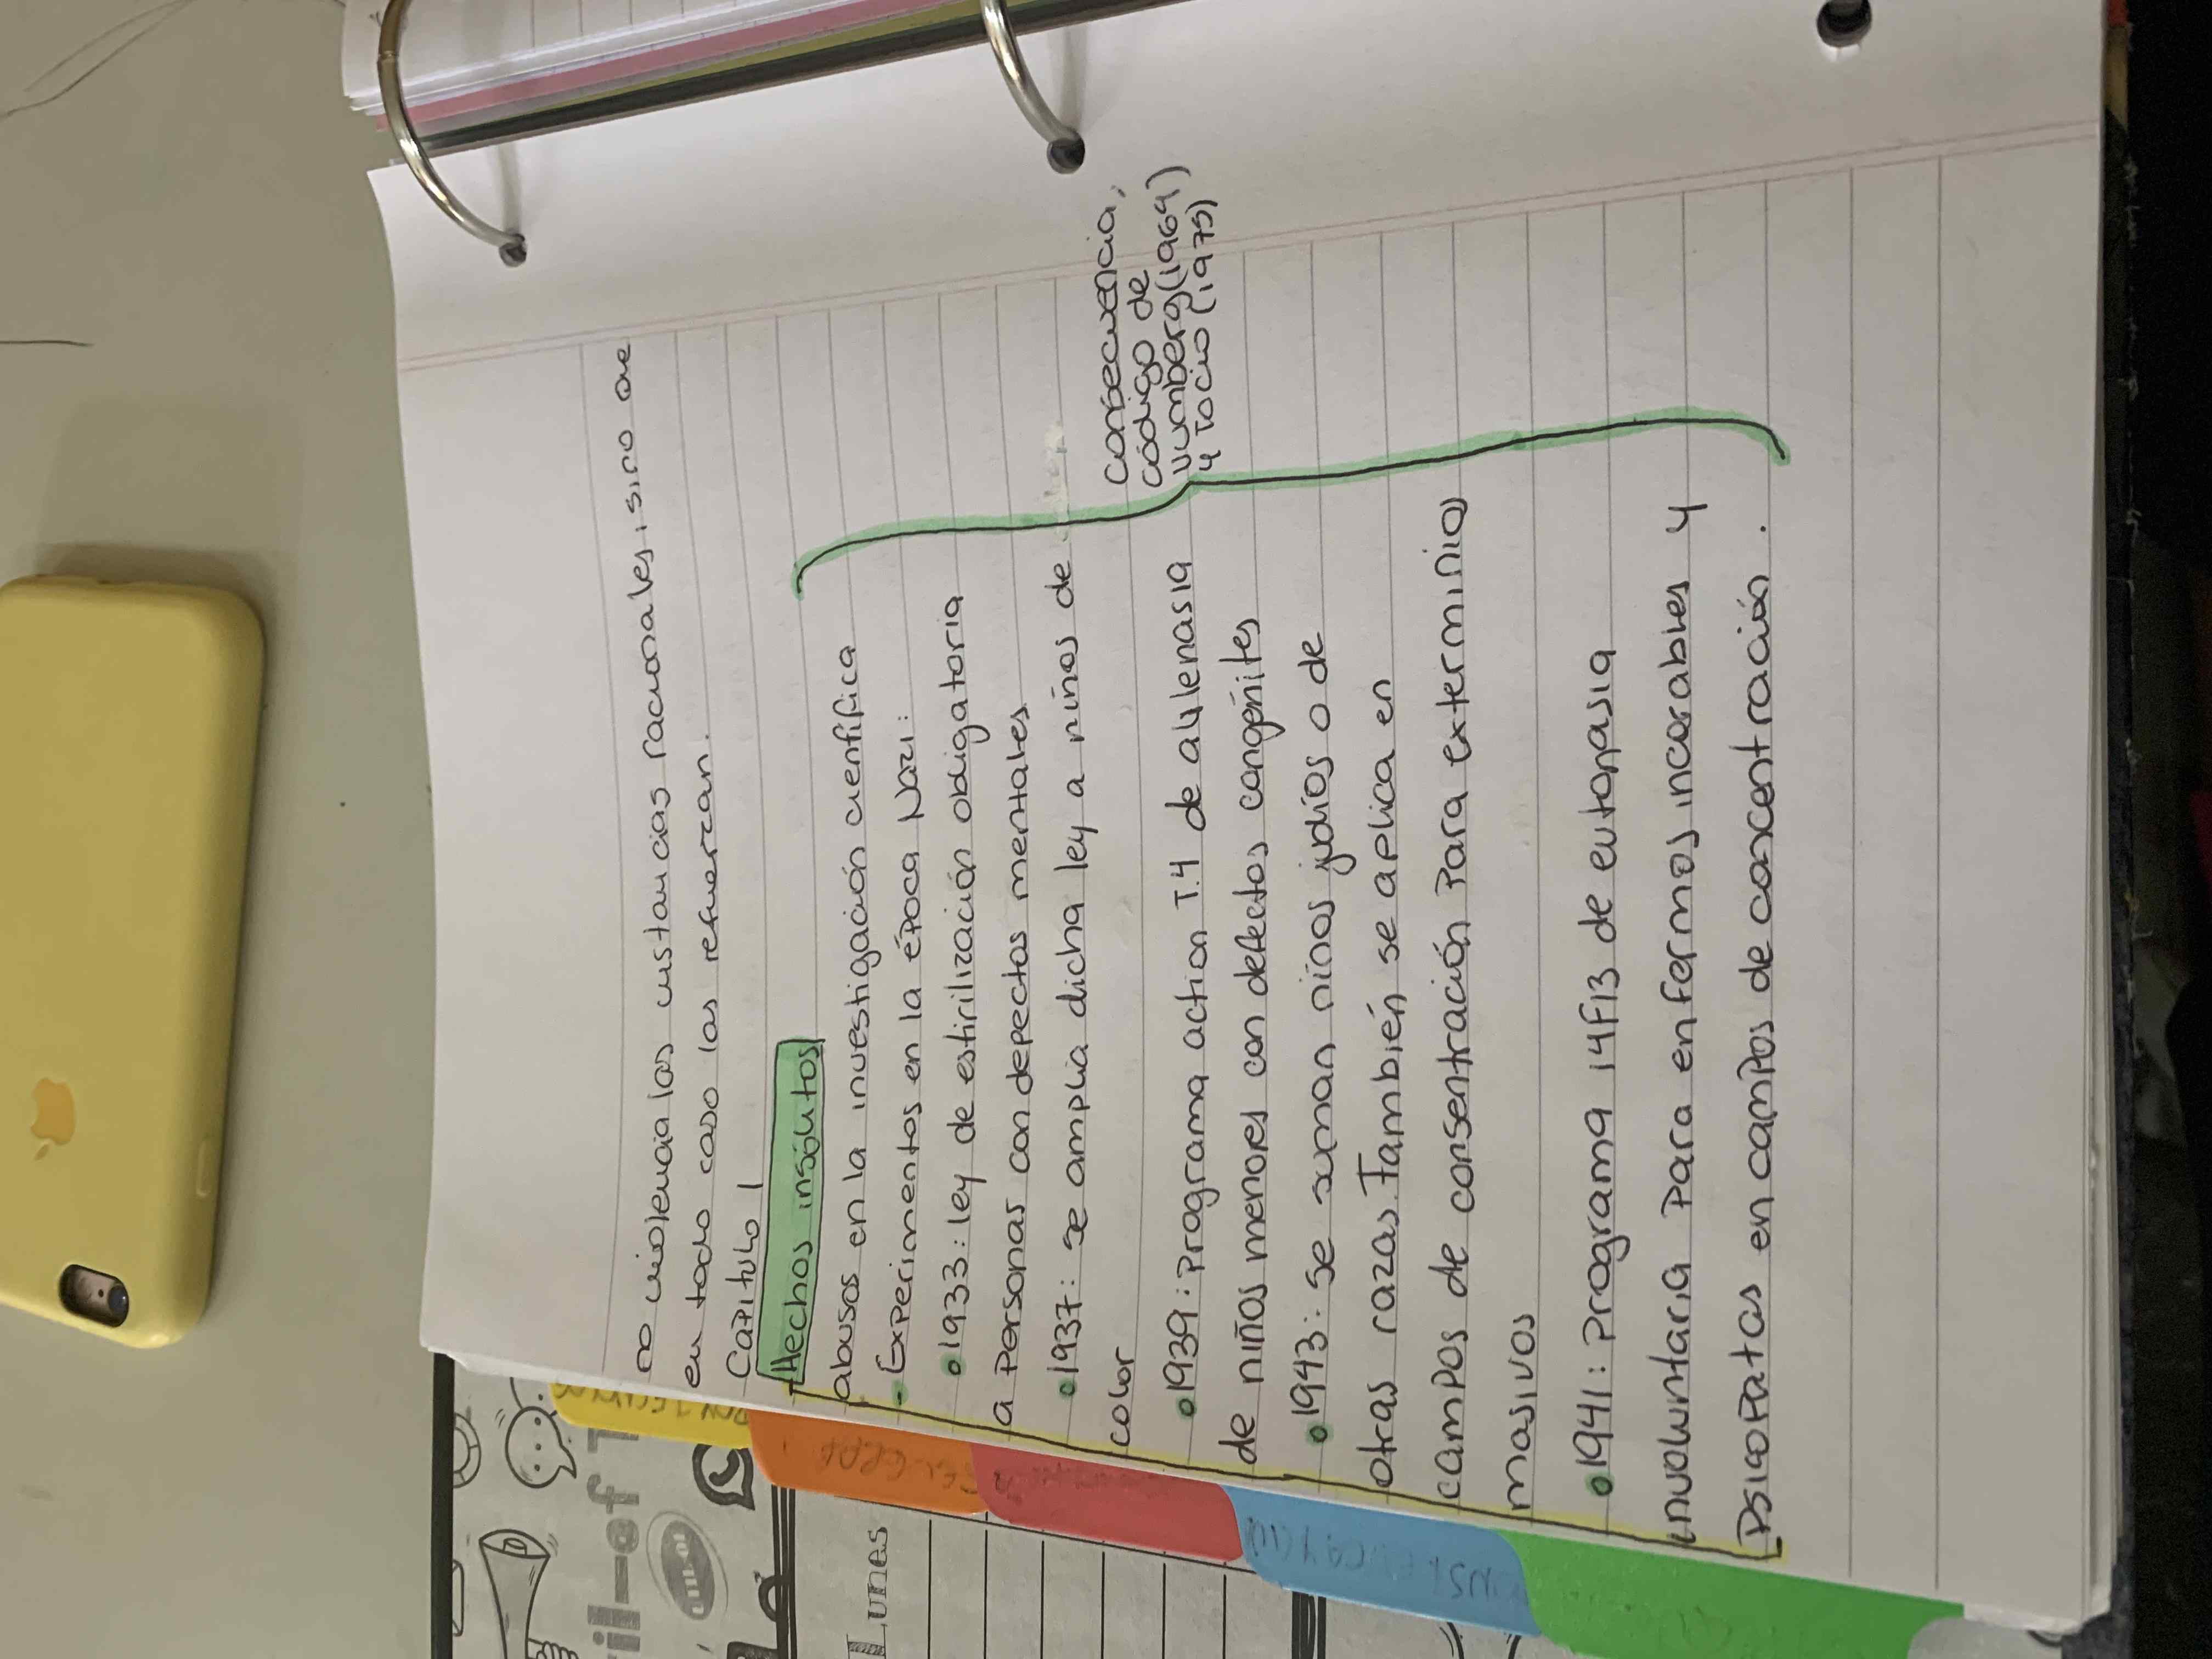 no violencia las custancias racionales, sino que
en todo caso las refuerzan.
Capitulo 1
Hechos insólitos
abusos en la investigación cientifica
- Experimentos en la época Nazi:
• 1933: ley de estirilización obligatoria
a personas con depectos mentales
• 1937: se amplia dicha ley a niños de
color
• 1939: programa action T.4 de
de niños menores con defectos congénites
• 1943: se suman niños judíos o de
otras razas. También se aplica en
campos de consentración para exterminio
masivos
• 1941: programa 14F13 de eutonasia
involuntaria para enfermos incorables y
psicopatas en campos de concentración.
consecuencia,
código de
Numberg (1969)
y Tocio (1975)
Lunes